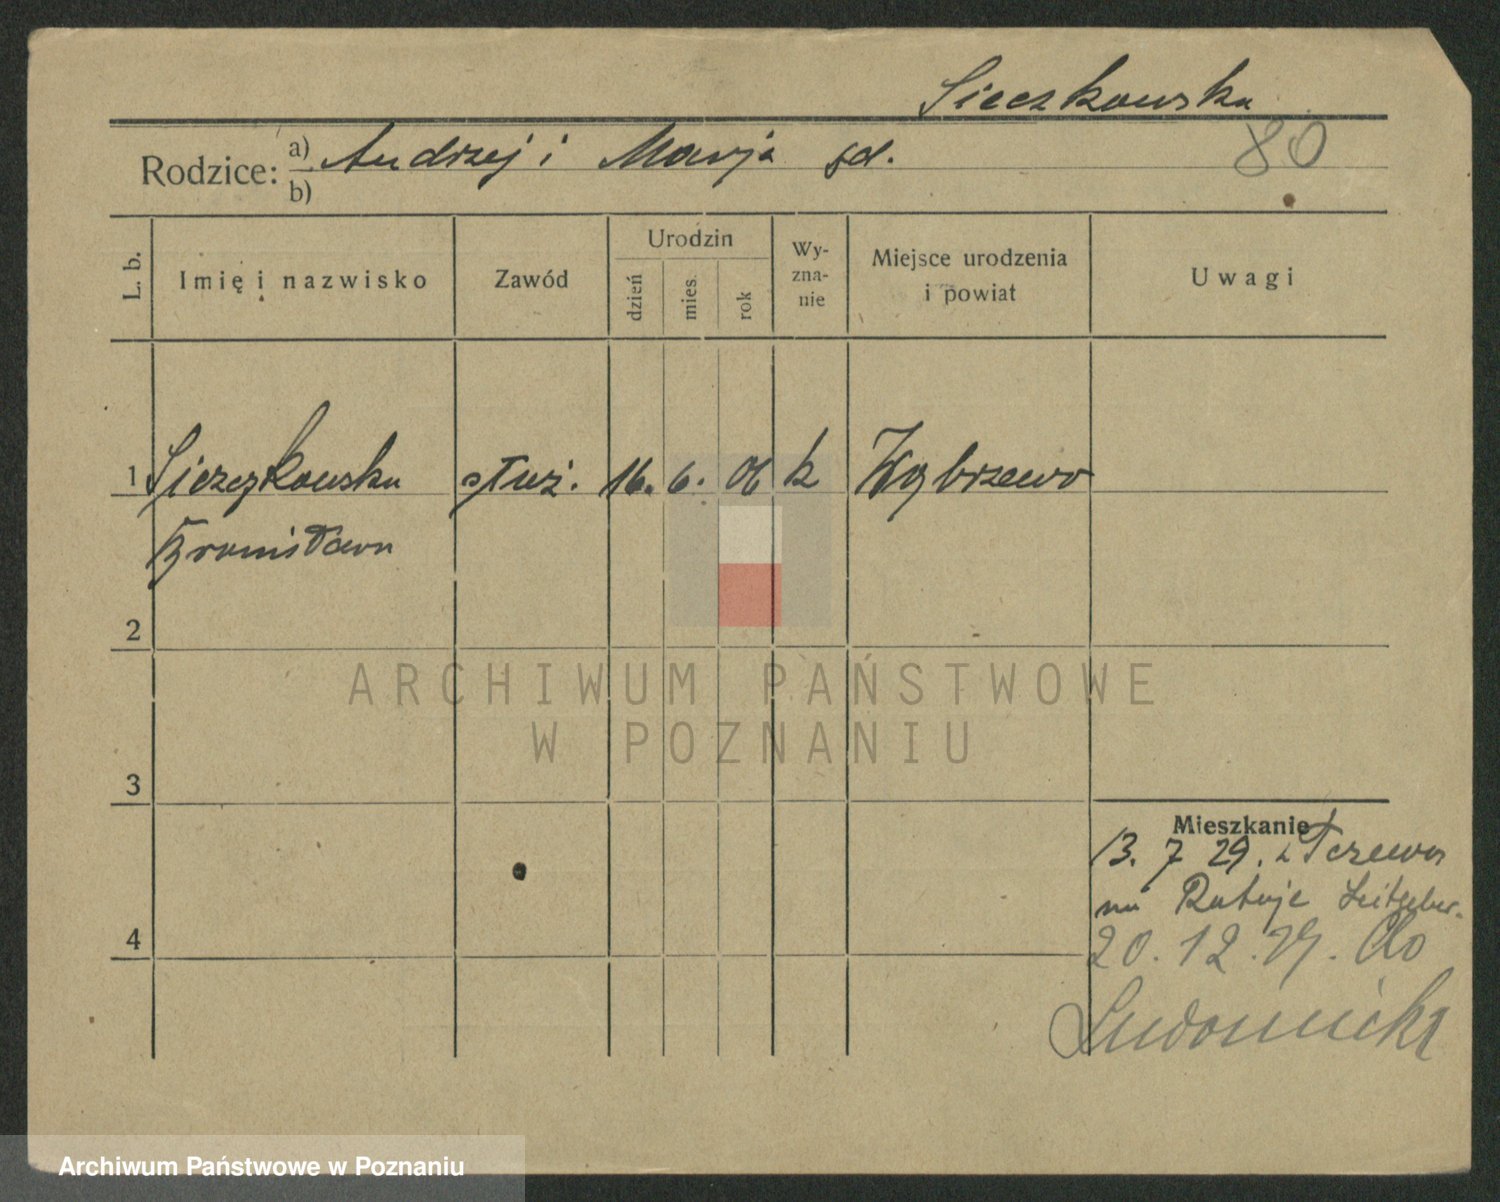 Sieczkowska
80
Rodzice: a) Andrzej i Marja
b)
L. b.
Imię i nazwisko
Zawód
Urodzin
dzień
mies.
rok
Wy-
zna-
nie
Miejsce urodzenia
i powiat
Uwagi
1 Sieczkowska służ. 16. 6. 06 k
Bronisława
2
3
4
Mieszkanie
13. 7 29. z Tczewa
na Rataje Leitgeber.
20. 12. 29. do
Ludomicki
ARCHIWUM PAŃSTWOWE
W POZNANIU
Archiwum Państwowe w Poznaniu